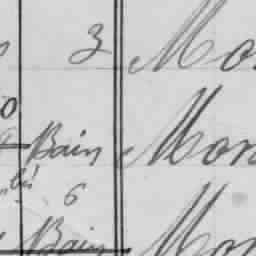 3 Mo
0 Bain Mon
bis 6
Bain Mon